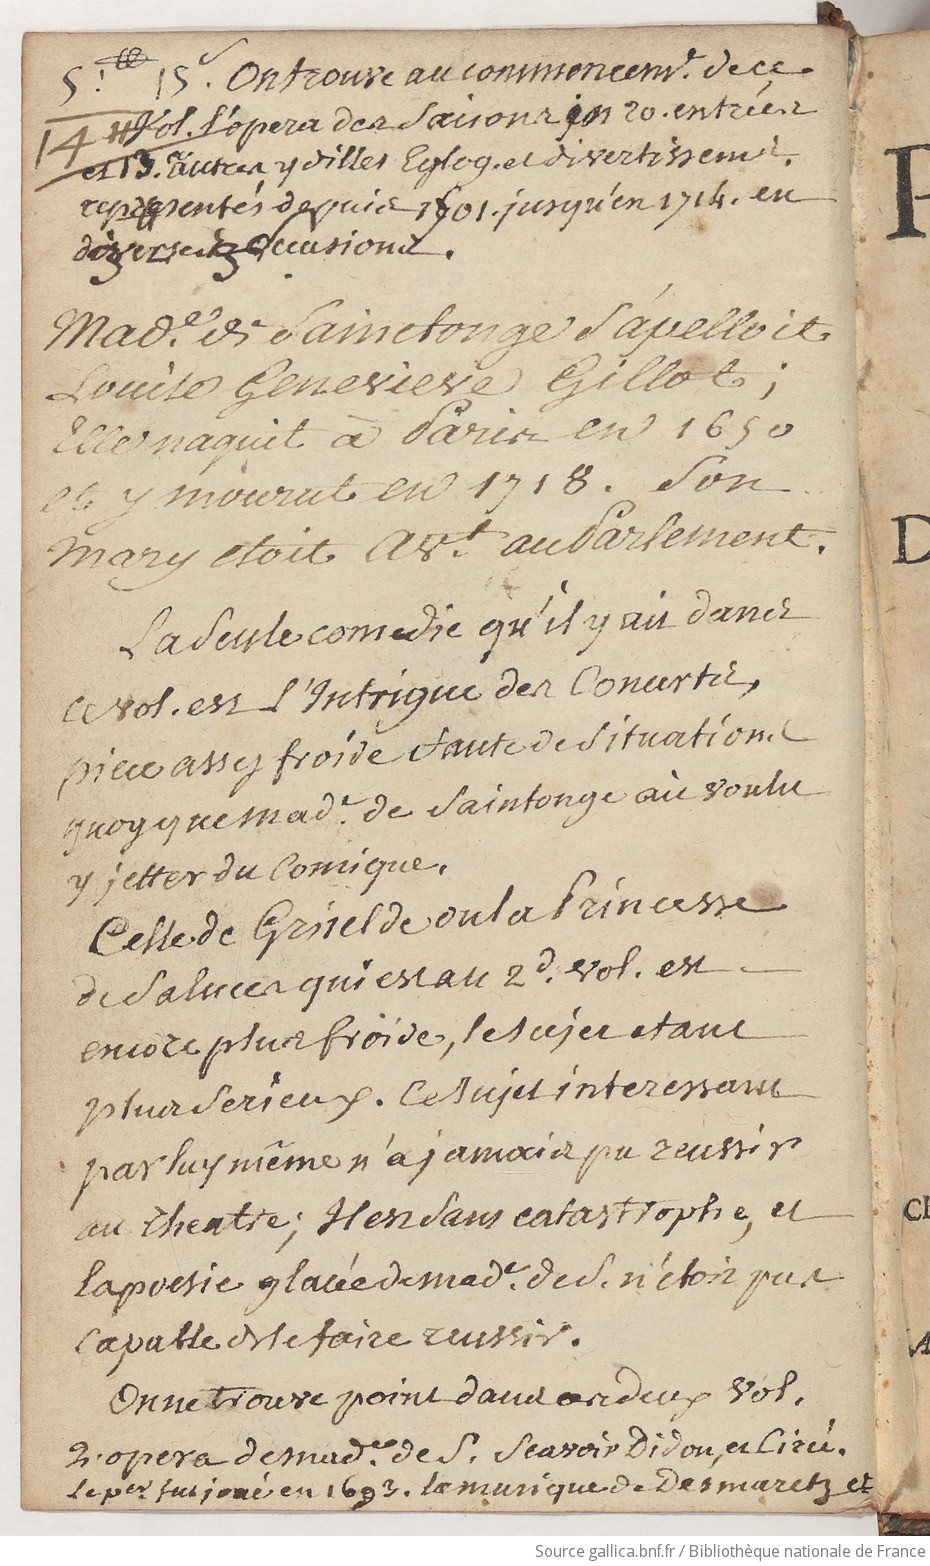 5.ᵗ 15ˢ. On trouve au commencemᵗ. de ce
14 Vol. l'opera des Saisons in 20. entrées
et 13. autres ydilles Eglog. et divertissemᵗ.
representés depuis 1701. jusqu'en 1714. en
diverses occasions.
Madᵉ. de Sainctonge s'apelloit
Louise Genevieve Gillot;
Elle naquit a Paris en 1650
et y mourut en 1718. Son
mary etoit Avᵗ. au Parlement.
La Seule comedie qu'il y ait dans
ce vol. est l'Intrigue des Concerts,
piece assez froide faute de situations
quoyque madᵉ. de Saintonge ait voulu
y jetter du Comique.
Celle de Griselde ou la Princesse
de Saluces qui est au 2ᵈ. vol. est
encore plus froide, le sujet etant
plus serieux. Ce sujet interessant
par luy même n'a jamais pu reussir
au theatre; Il est sans catastrophe, et
la poesie glacée de madᵉ. de S. n'étoit pas
capable de le faire reussir.
On ne trouve point dans ces deux vol.
2. opera de madᵉ. de S. Scavoir Didon, et Circé.
le pᵉʳ fut joué en 1693. la musique de Desmaretz et
P
D
Source gallica.bnf.fr / Bibliothèque nationale de France